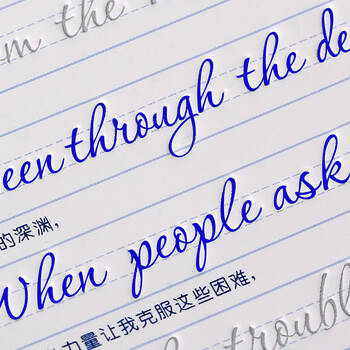 m the
een through the de
的深渊，
When people ask
力量让我克服这些困难，
troubl